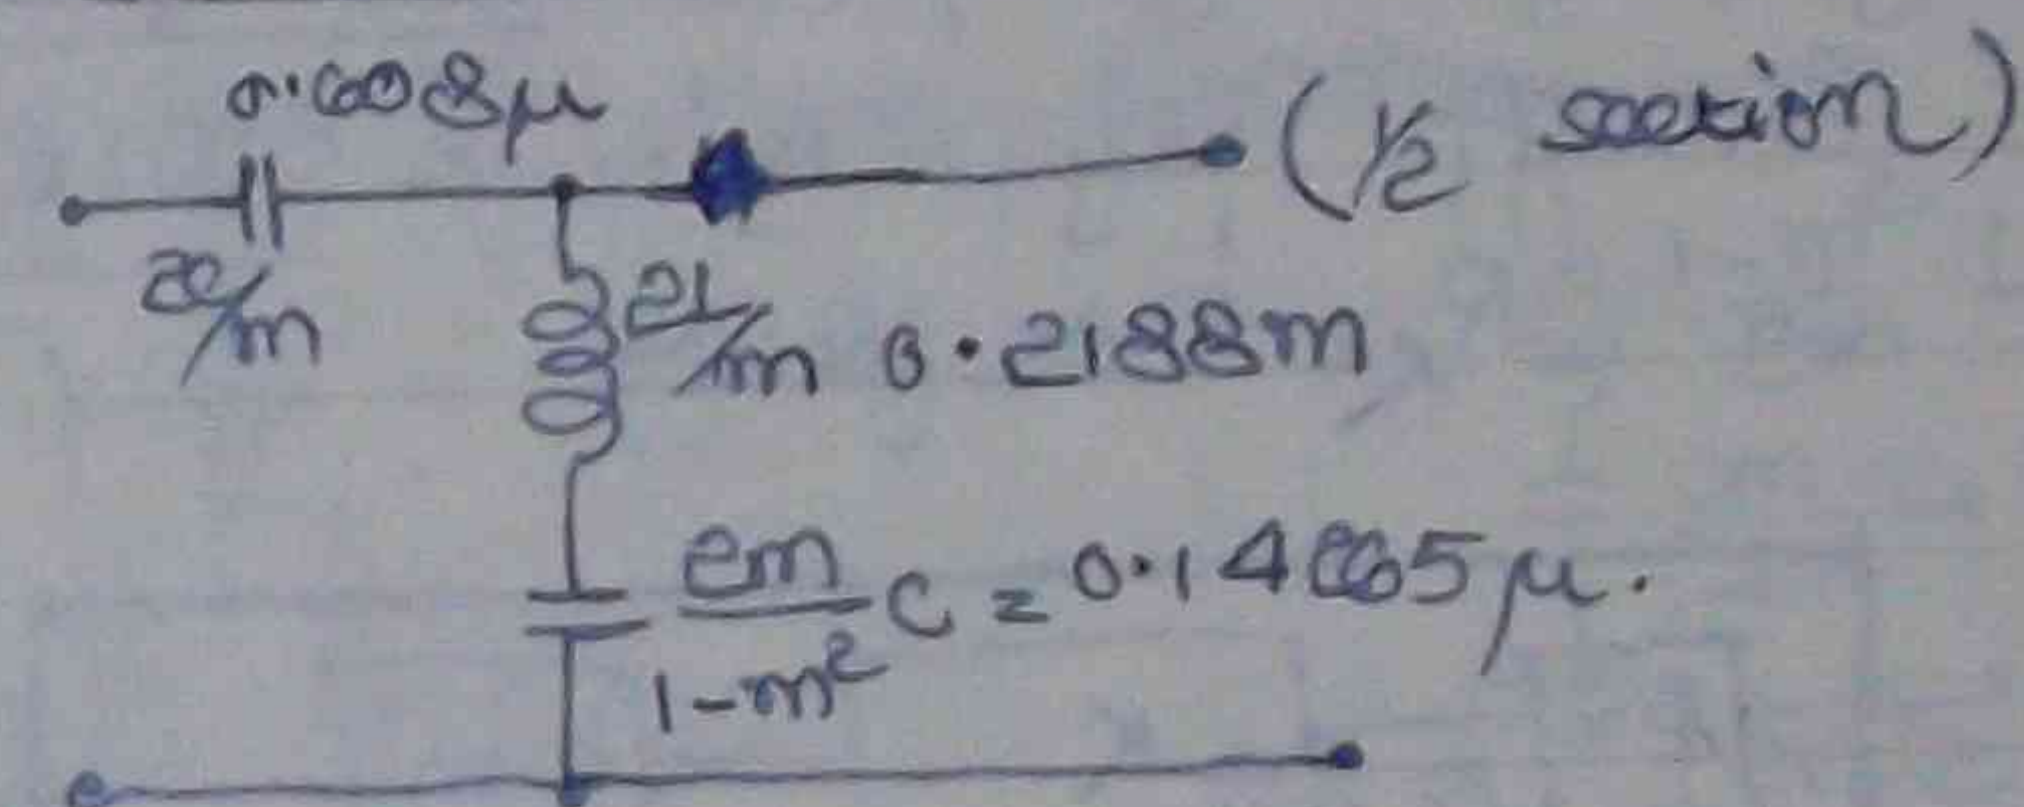 0.608μ
(1/2 section)
2C/m
2L/m 0.2188m
2m/1-m² C = 0.1465μ.